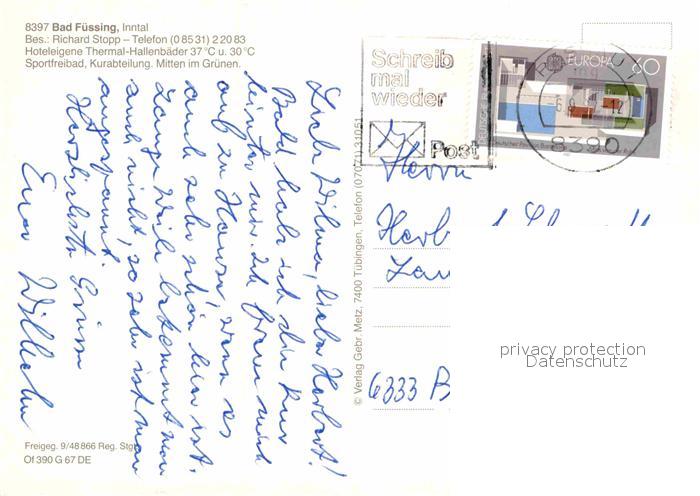 8397 Bad Füssing, Inntal
Bes.: Richard Stopp – Telefon (0 85 31) 2 20 83
Hoteleigene Thermal-Hallenbäder 37 °C u. 30 °C
Sportfreibad, Kurabteilung. Mitten im Grünen.
Liebe Wilma, lieber Herbert!
Bald habe ich die Kur
hinter mir. Ich freue mich
auf zu Hause, wenn es
auch sehr schön hier ist.
Lange Weile bekommt man
auch nicht, so sehr ist man
angespannt.
Herzlichste Grüsse
Euer Wilhelm
Freigeg. 9/48 866 Reg. Stgt.
Of 390 G 67 DE
© Verlag Gebr. Metz, 7400 Tübingen, Telefon (07071) 31051
Schreib
mal
wieder
Post
EUROPA 60
8390
Herrn
Herb
Lau
6333 B
privacy protection
Datenschutz